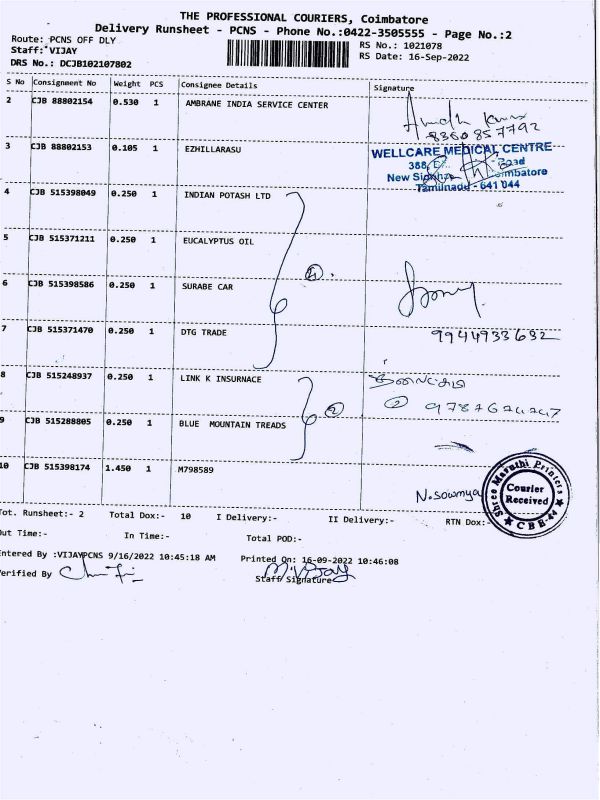 THE PROFESSIONAL COURIERS, Coimbatore
Delivery Runsheet - PCNS - Phone No.:0422-3505555 - Page No.:2
Route: PCNS OFF DLY
RS No.: 1021078
Staff: VIJAY
RS Date: 16-Sep-2022
DRS No.: DCJB102107802
S No Consignment No Weight PCS Consignee Details Signature
2 CJB 88802154 0.530 1 AMBRANE INDIA SERVICE CENTER
8360857792
3 CJB 88802153 0.105 1 EZHILLARASU
WELLCARE MEDICAL CENTRE
388, Road
New Coimbatore
Tamilnadu - 641 044
4 CJB 515398049 0.250 1 INDIAN POTASH LTD
5 CJB 515371211 0.250 1 EUCALYPTUS OIL
4
6 CJB 515398586 0.250 1 SURABE CAR
7 CJB 515371470 0.250 1 DTG TRADE
9944933632
8 CJB 515248937 0.250 1 LINK K INSURNACE
2
2
9 CJB 515288805 0.250 1 BLUE MOUNTAIN TREADS
10 CJB 515398174 1.450 1 M798589
N.sowmya
Shree Maruthi Printers
Courier
Received
CBE-44
Tot. Runsheet:- 2 Total Dox:- 10 I Delivery:- II Delivery:- RTN Dox:-
Out Time:- In Time:- Total POD:-
Entered By :VIJAYPCNS 9/16/2022 10:45:18 AM Printed On: 16-09-2022 10:46:08
Verified By
M.Vijay
Staff Signature